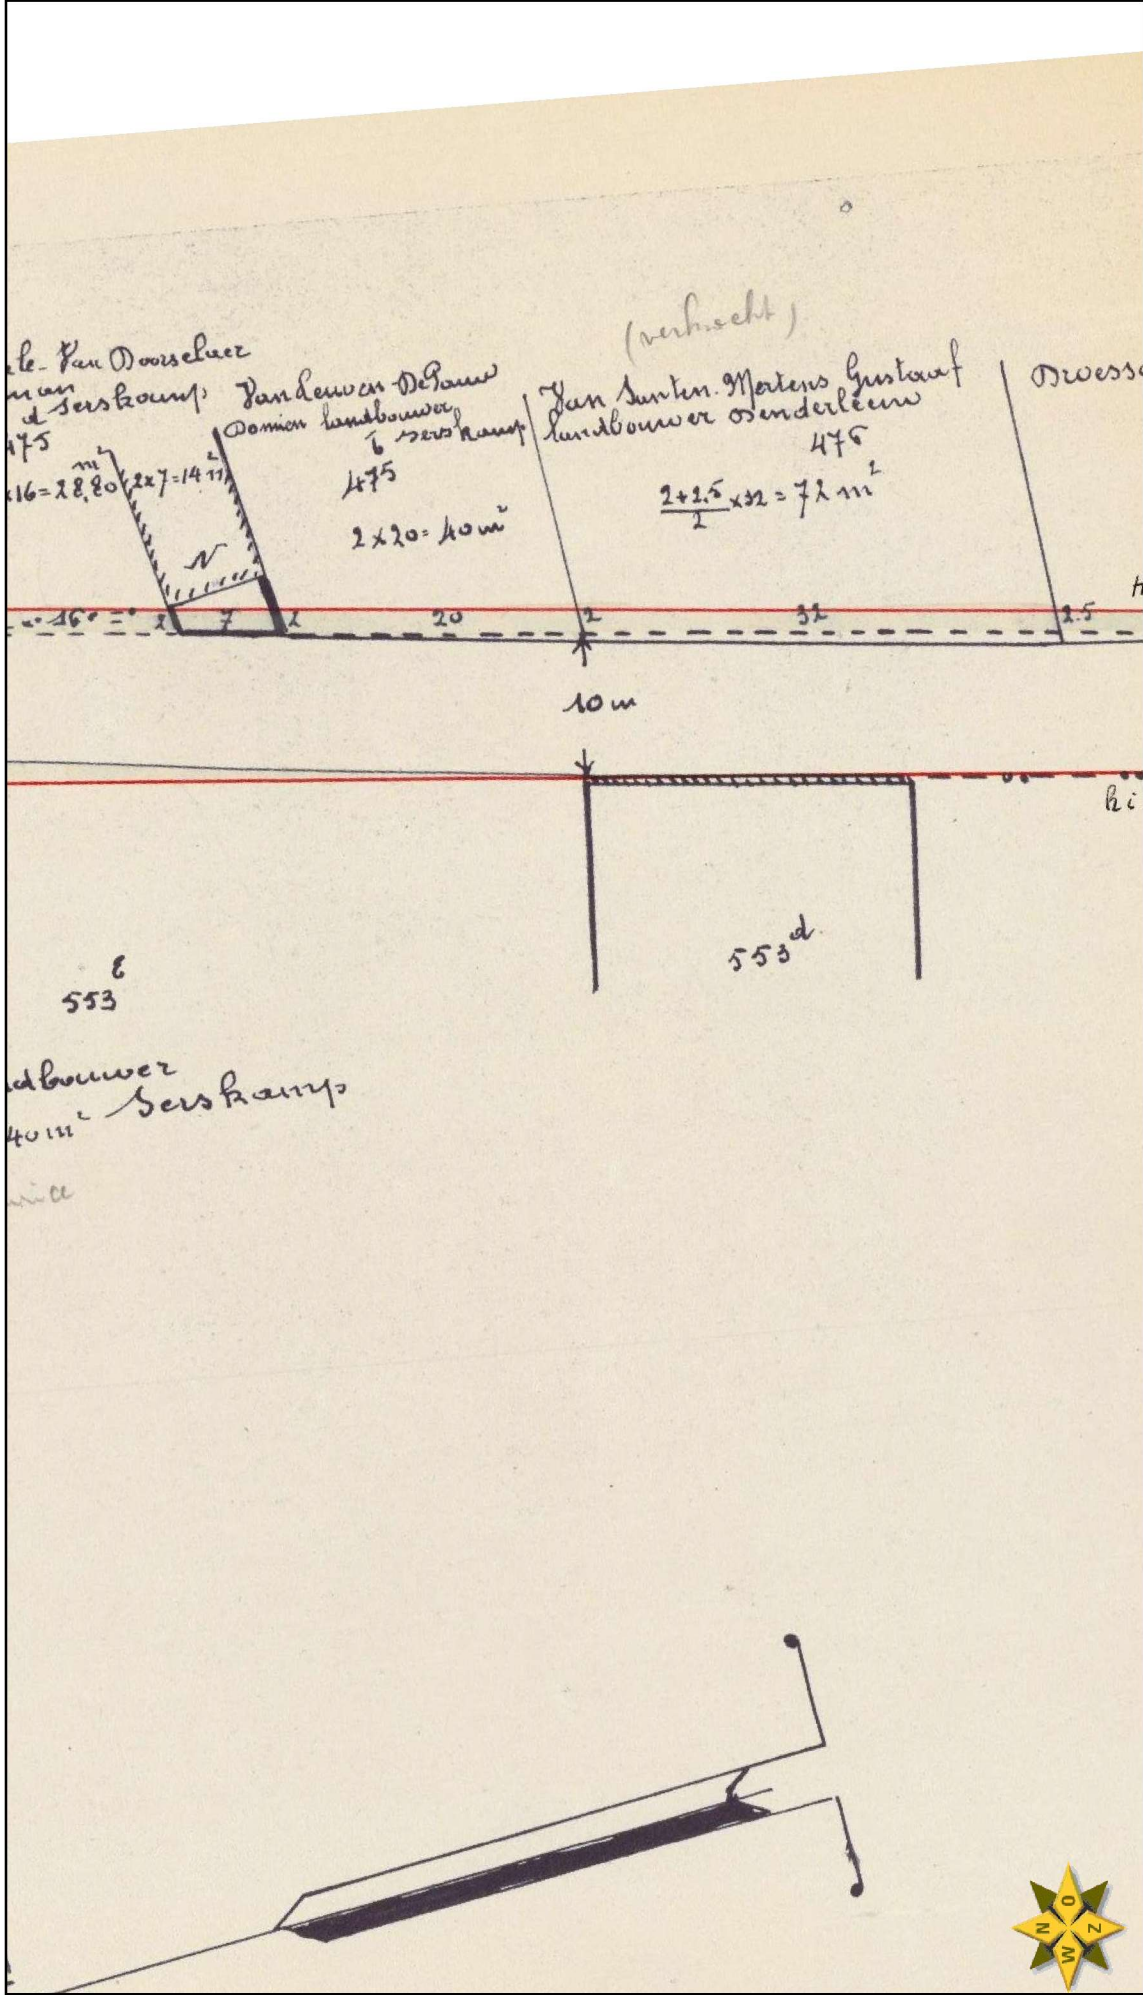 (verkocht)
le - Van Doorselaer
man
d Serskamp
475
×16=28,80 m²
2×7=14 m²
Van Leuven - De Pauw
Domien landbouwer
b Serskamp
475
2×20=40m²
Van Santen - Mertens Gustaaf
landbouwer Denderleeuw
476
2+2.5
2
×32=72 m²
Droess
N
16
2
7
2
20
2
32
2.5
H
10m
hi
553 d
553 E
dbouwer
Serskamp
40m²
O
N
Z
W